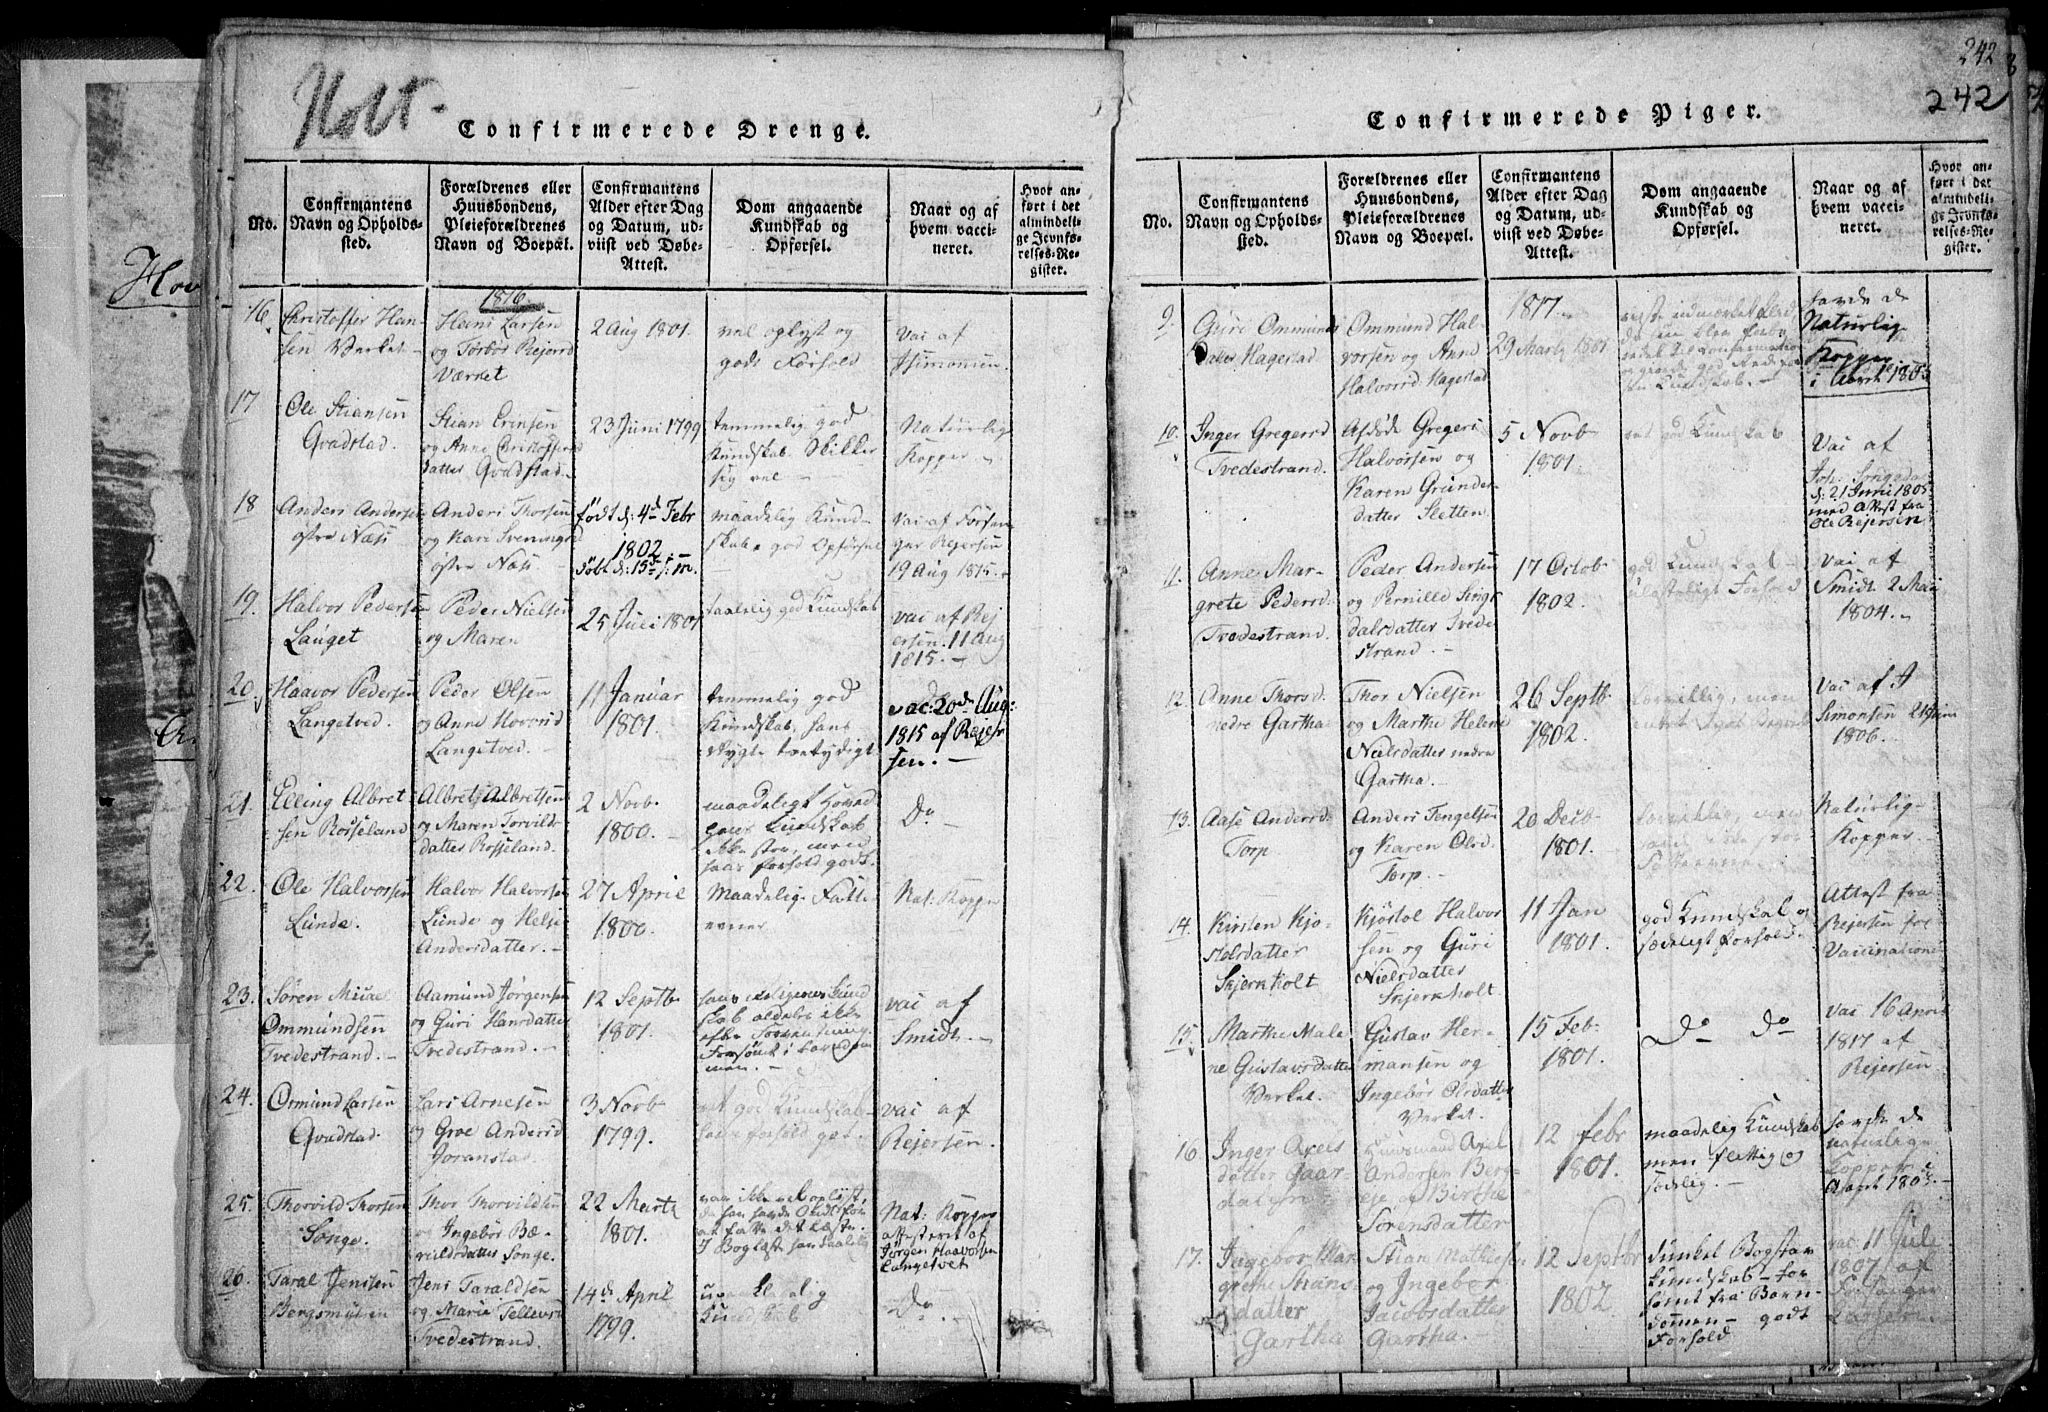 Holt
Confirmerede Drenge.
No.
Confirmantens
Navn og Opholds-
sted.
Forældrenes eller
Huusbondens,
Pleieforældrenes
Navn og Boepæl.
Confirmantens
Alder efter Dag
og Datum, ud-
viist ved Døbe-
Attest.
Dom angaaende
Kundskab og
Opførsel.
Naar og af
hvem vacci-
neret.
Hvor an-
ført i det
almindeli-
ge Jevnfø-
relses-Re-
gister.
1816
16
Christoffer Han-
sen Verket
Hans Larsen
og Torbør Rejersd
Værket
2 Aug 1801.
vel oplyst og
godt Forhold
Vac af
Simonsen.
17
Ole Stiansen
Qvadstad.
Stian Erinsen
og Anne Christoffers
datter Qvadstad
23 Juni 1799
temmelig god
Kundskab. Skikker
sig vel
Naturlig
Kopper
18
Anders Andersen
østre Næss
Anders Thorsen
og Kari Sveningsd
østre Næss
født d: 4de Febr
1802
døbt d: 15de s: m.
maadelig Kund-
skab, god Opførsel
vac af Torsten
Rejersen
19 Aug 1815.
19.
Halvor Pedersen
Lauget
Peder Nielsen
og Maren
25 Juli 1801
taalelig god Kundskab
vac af Rej
ersen. 11 Aug
1815.
20.
Haavor Pedersen
Langetved.
Peder Olsen
og Anne Hovorsd
Langetved.
11 Januar
1801.
temmelig god
Kundskab, hans
Rygte tvetydigt
vac: 20de Aug:
1815 af Rejer
sen.
21
Elling Albret
sen Rosseland
Albret Albretsen
og Maren Torvilds
datter Rosseland.
2 Novb
1800.
maadeligt Hoved
Kundskab
ikke stor, men
hans forhold godt.
Do
22.
Ole Halvorsen
Lunde.
Halvor Halvorsen
Lunde og Helje
Andersdatter.
27 April
1800.
Maadelig Fatte
evner
Nat: Kopper
23.
Søren Micael
Ommundsen
Tvedestrand.
Aamund Jørgensen
og Guri Hansdatter
Tvedestrand.
12 Septb
1801.
hans religieuse Kund
skab aldeles ikke
efter Forventning.
Forsømt i barndom
men.
vac af
Smidt.
24.
Ormund Larsen
Qvadstad.
Lars Arnesen
og Groe Andersd
Joranstad
3 Novb
1799.
ret god Kundskab
hans forhold god
vac af
Rejersen.
25.
Thorvild Thorsen
Songe.
Thor Thorvildsen
og Ingebør Bæ-
rulsdatter Songe.
22 Martz
1801.
var ikke vel oplyst,
da han havde Ondt for
at fatte det Læste.
I Boglæsn: han taalelig
Nat: Kopper
attesteret af
Jørgen Haavorsen
Langetvet
26.
Taral Jensen
Bergsmyren
Jens Taraldsen
og Marie Tellevsd
Tvedestrand.
14de April
1799.
Kundskab
Do
242
242
Confirmerede Piger.
No.
Confirmantens
Navn og Opholds-
sted.
Forældrenes eller
Huusbondens,
Pleieforældrenes
Navn og Boepæl.
Confirmantens
Alder efter Dag
og Datum, ud-
viist ved Døbe-
Attest.
Dom angaaende
Kundskab og
Opførsel.
Naar og af
hvem vacci-
neret.
Hvor an-
ført i det
almindeli-
ge Jevnfø-
relses-Re-
gister.
9.
Guri Ommunds
datter Hagestad.
Ommund Hal-
vorsen og Anne
Halvorsd Hagestad
1817.
29 Martz 1801
havde de
Naturlige
Kopper
i Aaret 1803
10.
Inger Gregersd
Tvedestrand.
Afdøde Gregers
Halvorsen og
Karen Gunder-
datter Sletten
5 Novb
1801.
ret god Kundskab
Vac af
Joh: Songedal
d: 21 Juni 1805
med Attest fra
Ole Rejersen
11.
Anne Mar-
grete Pedersd.
Tvedestrand.
Peder Andersen
og Pernille Sings
dalsdatter Tvede
strand.
17 Octob
1802.
god Kundskab
ulasteligt Forhold
Vac af
Smidt 2 Mai
1804.
12.
Anne Thorsd.
nedre Gartha
Thor Nielsen
og Marthe Helene
Nielsdatter nedre
Gartha.
26 Septb
1802.
Vac af J
Simonsen 21 Juni
1806.
13.
Aase Andersd.
Torp
Anders Tengelsen
og Karen Olsd
Torp.
20 Decb
1801.
Naturlig-
Kopper.
14.
Kirsten Kjø-
stolsdatter
Skjernholt
Kjøstol Halvor
sen og Guri
Nielsdatter
Skjernholt
11 Jan
1801.
god Kundskab og
sædeligt forhold.
Attest fra
Rejersen for
Vaccination
15.
Marthe Male
ne Gustavsdatter
Verket.
Gustav Her-
mansen og
Ingebør Olsdatter
Verket.
15 Feb
1801.
Do Do
Vac 16 April
1817 af
Rejersen
16.
Inger Axels
datter Gaar
dalen
Huusmand Axel
Andersen Berg-
eje og Birthe
Sørensdatter
12 febr
1801.
maadelig Kundskab
men flittig og
sædelig.
havde de
naturlige
Kopper i
Aaret 1803.
17.
Ingebor Mar
grethe Stians
datter
Gartha
Stian Mathiesen
og Ingebor
Jacobsdatter
Gartha.
12 Septbr
1802
dunkel Bogstav
Kundskab - for
sømt fra Barn-
dommen - godt
Forhold
vac 11 Juli
1807 af
Forsanger
Larsen